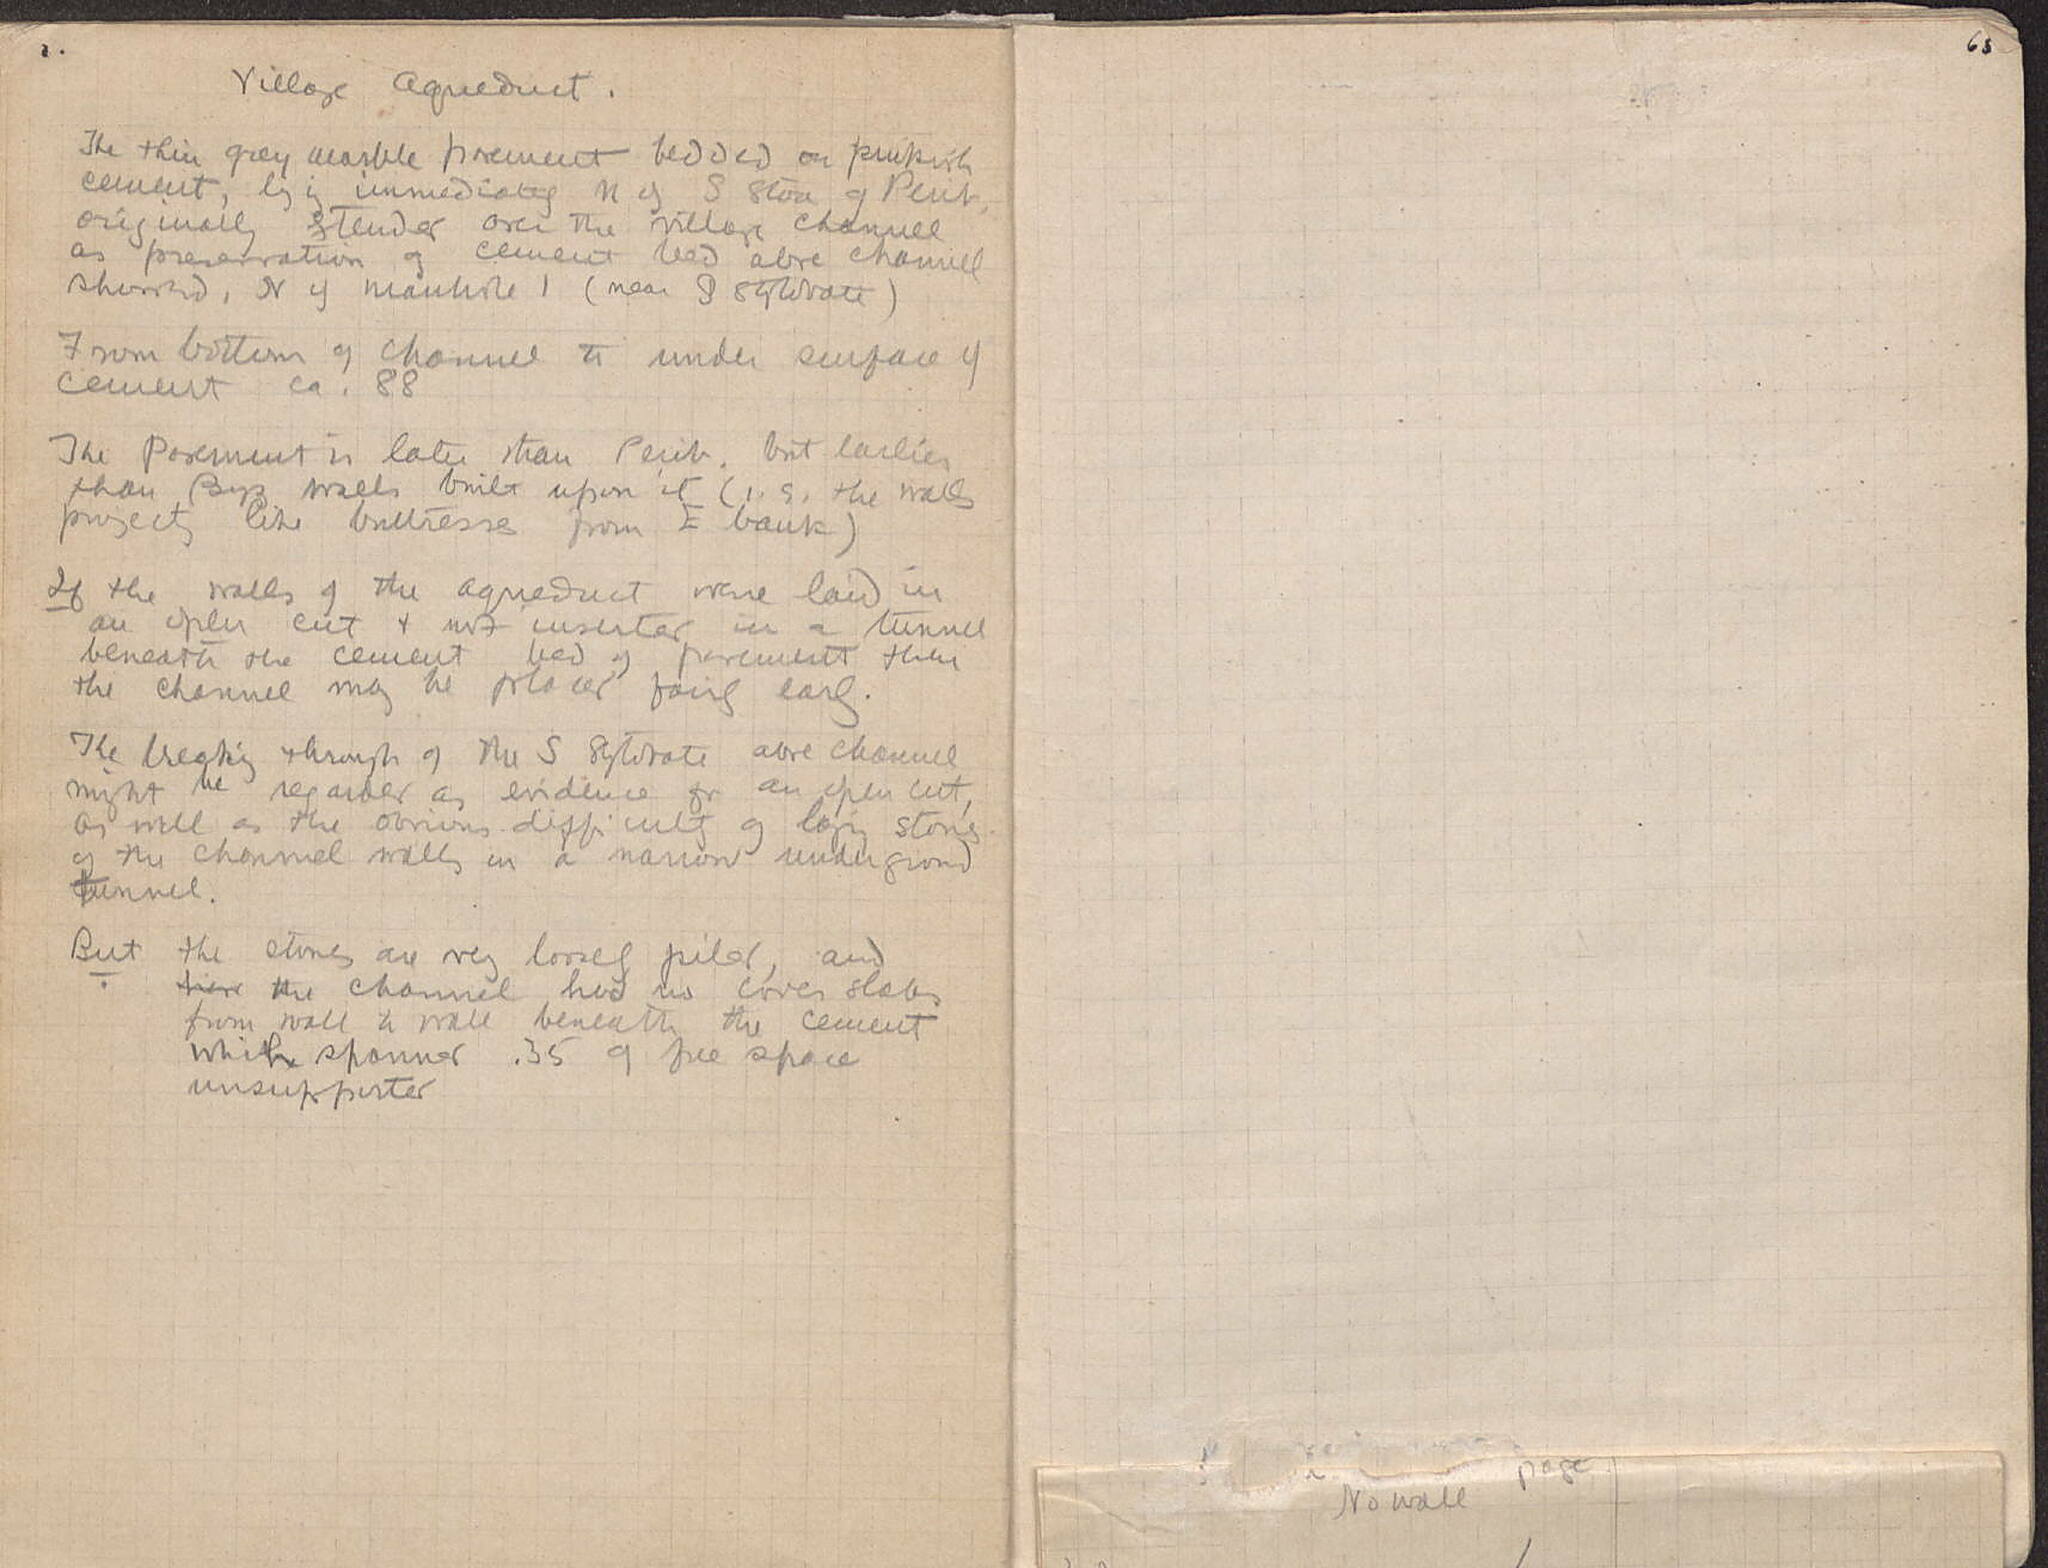 Village Aqueduct.
The thin grey marble pavement bedded on pinkish
cement, lyig immediately N of S Stoa of Perib.
originally extended over the village channel
as preservation of cement bed above channel
showed, N of manhole 1 (near S stylobate)
From bottom of channel to under surface of
cement ca. 88
The Pavement is later than Perib. but earlier
than Byz walls built upon it (i.e. the walls
projectg like buttresses from E bank)
If the walls of the aqueduct were laid in
an open cut + not inserted in a tunnel
beneath the cement bed of pavement then
the channel may be placed fairly early.
The breakig through of the S Stylobate above channel
might be regarded as evidence for an open cut,
as well as the obvious difficulty of layig stones
of the channel walls in a narrow underground
tunnel.
But the stones are very loosely piled, and
the channel had no cover slabs
from wall to wall beneath the cement
which spanned .35 of free space
unsupported
65
page
No wall